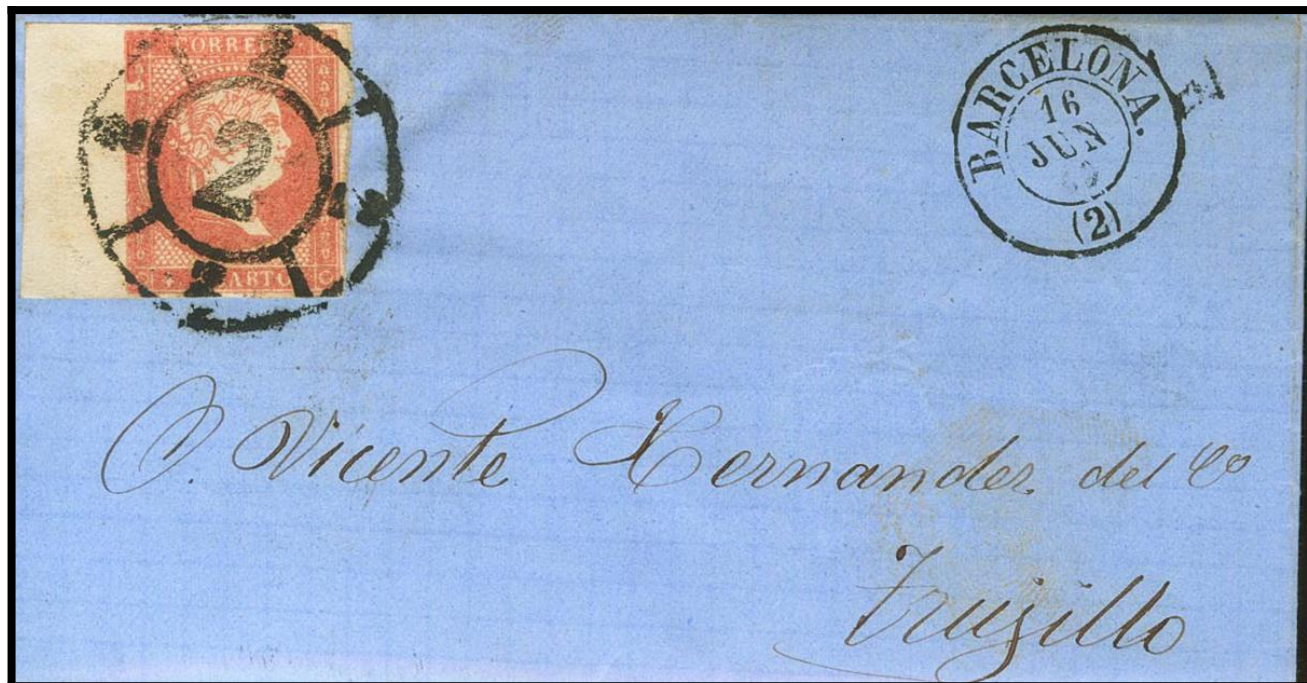 CORREOS
2
BARCELONA.
16
JUN
(2)
D. Vicente Hernandez del Co
Trujillo